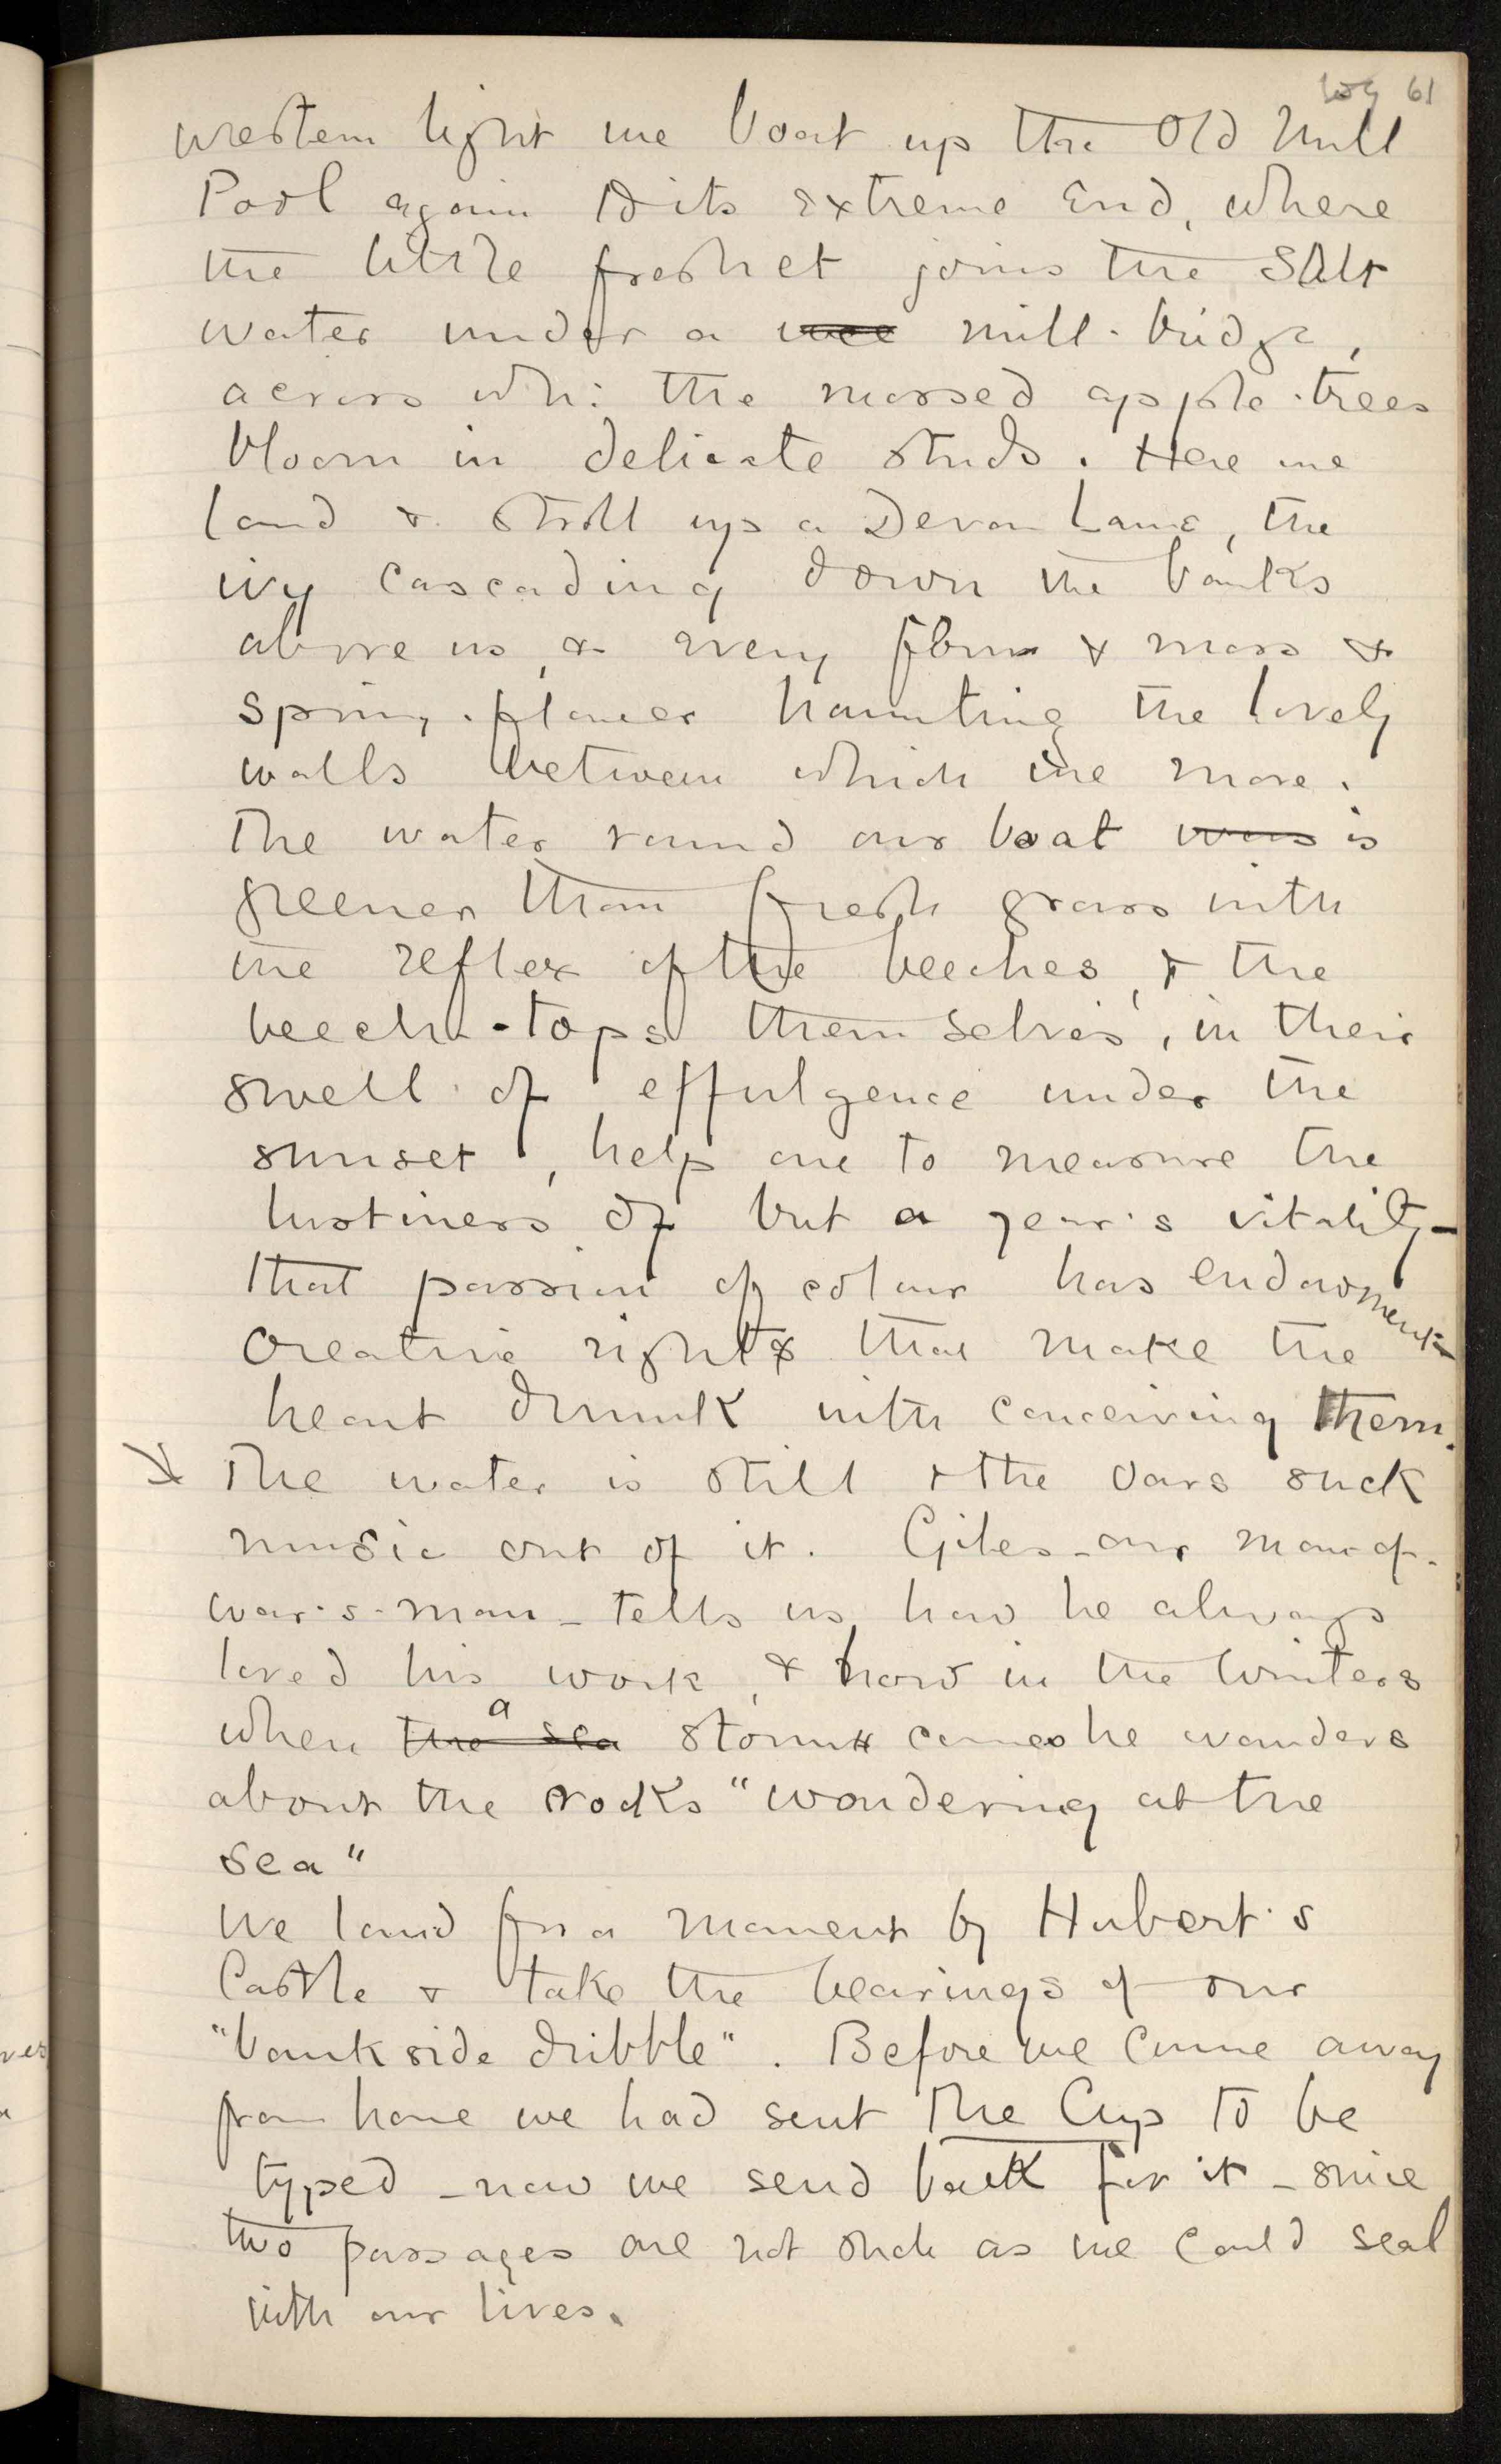 61
western light we boat up the Old Mill
Pool again to its extreme end, where
the little freshet joins the salt
water under a mill-bridge,
across wh: the mossed apple-trees
bloom in delicate studs. Here we
land & stroll up a Devon Lane, the
ivy cascading down the banks
above us, & every fern & moss &
spring-flower haunting the lovely
walls between which we move.
The water round our boat was is
greener than fresh grass with
the reflex of the beeches, & the
beech-tops themselves, in their
swell of effulgence under the
sunset, help one to measure the
lustiness of but a year's vitality—
that passion of colour has endowments
creative rights that make the
heart drunk with conceiving them.
The water is still & the oars suck
music out of it. Giles - our man-of-
war's-man - tells us how he always
loved his work, & how in the winters
when the sea a storm comes he wanders
about the rocks "wondering at the
sea"
We land for a moment by Hubert's
Castle & take the bearings of our
"bankside dribble". Before we came away
from home we had sent The Cup to be
typed - now we send back for it - since
two passages are not such as we could seal
with our lives.